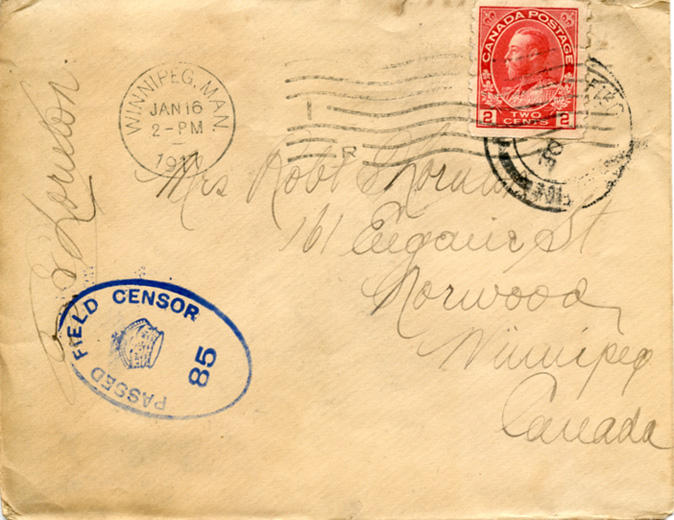 CANADA POSTAGE
2 TWO CENTS 2
WINNIPEG, MAN.
JAN 16
2 - PM
I
R
Mrs Robt
161 Eugenie St
Norwood
Winnipeg
Canada
PASSED FIELD CENSOR
85